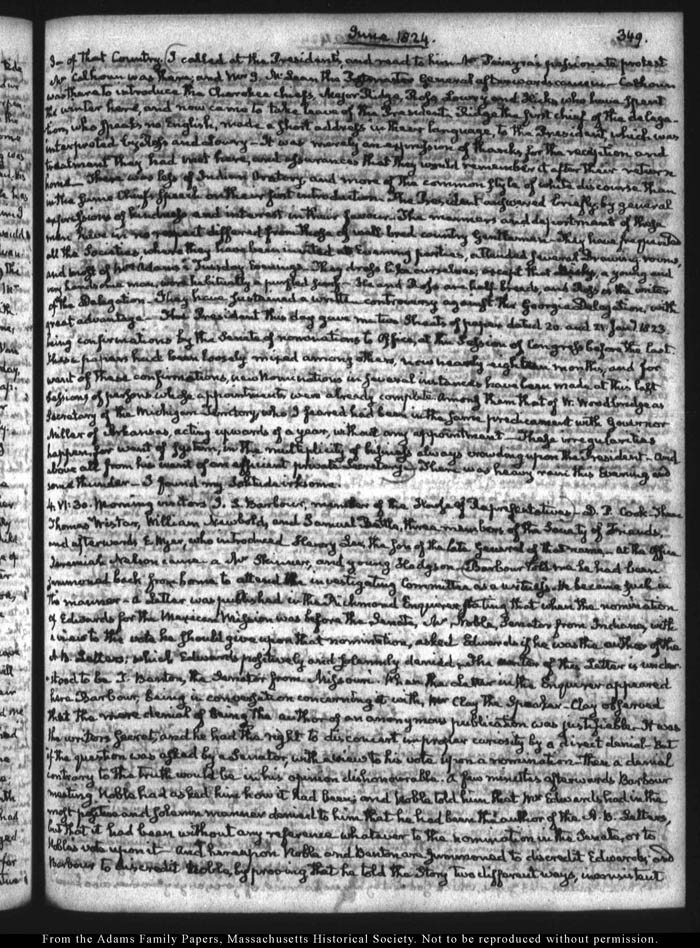 June 1824.
349.
I— of that Country. I called at the President's, and read to him Mr Pereyra's passionate protest
Mr Calhoun was there, and Mr J. McLean the Postmaster General afterwards came in— Calhoun
was there to introduce the Cherokee chiefs, Major Ridge, Ross, Lowry, and Hicks, who have spent
the winter here, and now came to take leave of the President. Ridge the first chief of the delega-
tion, who speaks no English, made a short address in their language, to the President which was
interpreted by Ross and Lowry— It was merely an expression of thanks for the reception and
treatment they had met here, and assurances that they would remember it after their return
home— There was less of Indian Oratory, and more of the common style of white discourse than
in the same Chief's speech on their first introduction. The President answered briefly, by general
expressions of kindness and interest in their favour— The manners and deportment of these
men have in no respect differed from those of well bred country Gentlemen— They have frequented
all the Societies, where they have been invited at Evening parties, attended several drawing-rooms,
and most of Mrs Adams's Tuesday Evenings. They dress like ourselves, except that Hicks, a young and
very handsome man, wore habitually a purfled scarf— He and Ross are half breeds, and Ross is the writer
of the Delegation— They have sustained a written controversy against the Georgia Delegation, with
great advantage— The President this day gave me two Sheets of papers dated 20. and 21 Jany 1823.
being confirmations by the Senate of nominations to Offices, at the Session of Congress before the last.
These papers had been loosely mixed among others, now nearly eighteen months, and for
want of these confirmations, new nominations in several instances have been made at this last
Session, of persons whose appointments were already complete. Among them that of W. Woodbridge as
Secretary of the Michigan Territory, who I feared had been in the same predicament with Governor
Miller of Arkansas, acting upwards of a year, without any appointment— These irregularities
happen for want of System, in the multiplicity of business always crowding upon the President— and
above all from his want of an efficient private Secretary— There was heavy rain this Evening and
some thunder— I found my solitude irksome.
4. VI:30. Morning visitors J. S. Barbour, member of the House of Representatives— D. P. Cook. There
Thomas Wistar, William Newbold, and Samuel Bettle, three members of the Society of Friends,
and afterwards E. Wyer, who introduced Henry Lee, the son of the late General of that name— At the Office
Jeremiah Nelson came— a Mr Skinner, and young Sladgson. Barbour told me he had been
summoned back from home to attend the investigating Committee as a witness. He became such in
this manner— a Letter was published in the Richmond Enquirer, stating that when the nomination
of Edwards for the Mexican Mission was before the Senate, Mr Noble, Senator from Indiana, with
a view to the vote he should give upon that nomination, asked Edwards if he was the author of the
A.B. Letters; which Edwards positively and solemnly denied. The writer of this Letter is under-
stood to be T. Benton, the Senator from Missouri. When the Letter in the Enquirer appeared
here Barbour, being in conversation concerning it with Mr Clay the Speaker— Clay observed
that the mere denial of being the author of an anonymous publication was justifiable. It was
the writer's secret, and he had the right to disconcert improper curiosity by a direct denial— But
if the question was asked by a Senator, with a view to his vote upon a nomination— then a denial
contrary to the truth would be in his opinion dishonourable. A few minutes afterwards Barbour
meeting Noble had asked him how it had been; and Noble told him that Mr Edwards had in the
most positive and solemn manner denied to him that he had been the author of the A. B. Letters,
but that it had been without any reference whatever to the nomination in the Senate, or to
Noble's vote upon it— And hereupon Noble and Benton are summoned to discredit Edwards, and
Barbour to discredit Noble, by proving that he told the Story two different ways, inconsistent
From the Adams Family Papers, Massachusetts Historical Society. Not to be reproduced without permission.